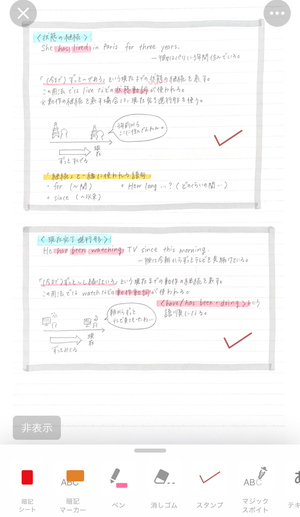 〈状態の継続〉
She has lived in Paris for three years.
「(今まで)ずっと〜である」という現在までの状態の継続を表す。
この用法では liveなどの状態動詞が使われる。
※動作の継続を表す場合には現在完了進行形を使う。
3年前から
ここに住んでんねん
ずっと
現在
「継続」と一緒に使われる語句
・for (〜間)
・How long …? (どのくらいの間…)
・since (〜以来)
〈現在完了進行形〉
He has been watching TV since this morning.
「(今まで)ずっと〜し続けている」という現在までの動作の継続を表す。
この用法では watchなどの動作動詞が使われる。
〈have/has been + doing〉という
語順になる。
朝からずっと
現在
非表示
暗記
シート
ABC
暗記
マーカー
ペン
消しゴム
スタンプ
ABC
マジック
スポイト
テキ